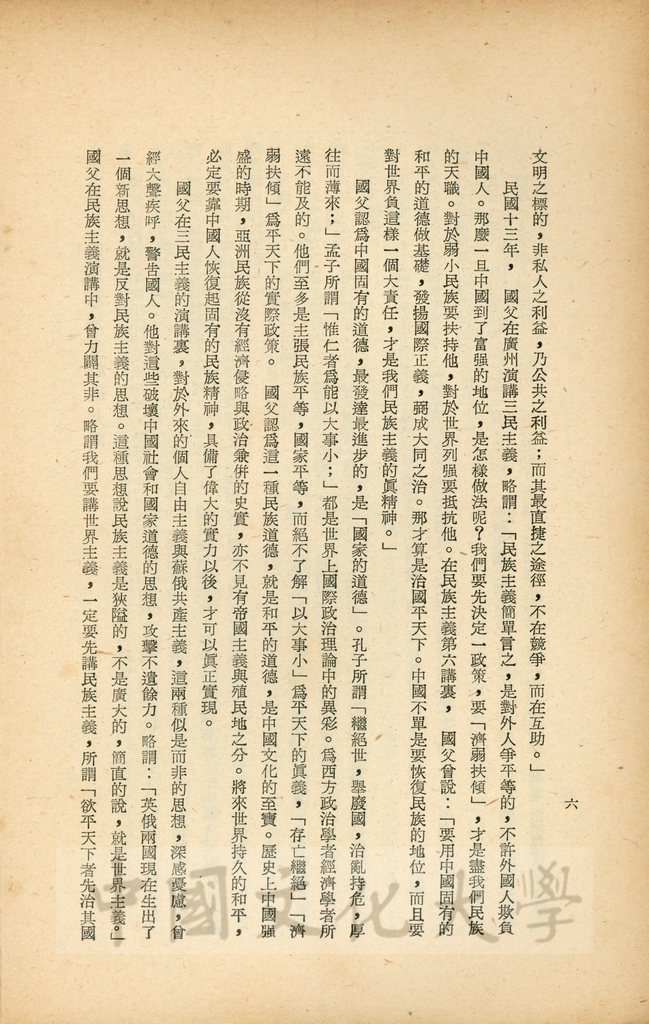 文明之標的，非私人之利益，乃公共之利益；而其最直捷之途徑，不在競爭，而在互助。」
民國十三年，　國父在廣州演講三民主義，略謂：「民族主義簡單言之，是對外人爭平等的，不許外國人欺負
中國人。那麼一旦中國到了富强的地位，是怎樣做法呢？我們要先決定一政策，要「濟弱扶傾」，才是盡我們民族
的天職。對於弱小民族要扶持他，對於世界列强要抵抗他。在民族主義第六講裏，　國父曾說：「要用中國固有的
和平的道德做基礎，發揚國際正義，弼成大同之治。那才算是治國平天下。中國不單是要恢復民族的地位，而且要
對世界負這樣一個大責任，才是我們民族主義的眞精神。」
國父認爲中國固有的道德，最發達最進步的，是「國家的道德」。孔子所謂「繼絕世，舉廢國，治亂持危，厚
往而薄來；」孟子所謂「惟仁者爲能以大事小；」都是世界上國際政治理論中的異彩。爲西方政治學者經濟學者所
遠不能及的。他們至多是主張民族平等，國家平等，而絕不了解「以大事小」爲平天下的眞義，「存亡繼絕」「濟
弱扶傾」爲平天下的實際政策。　國父認爲這一種民族道德，就是和平的道德，是中國文化的至寶。歷史上中國强
盛的時期，亞洲民族從沒有經濟侵略與政治兼併的史實，亦不見有帝國主義與殖民地之分。將來世界持久的和平，
必定要靠中國人恢復起固有的民族精神，具備了偉大的實力以後，才可以眞正實現。
國父在三民主義的演講裏，對於外來的個人自由主義與蘇俄共產主義，這兩種似是而非的思想，深感憂慮，曾
經大聲疾呼，警告國人。他對這些破壞中國社會和國家道德的思想，攻擊不遺餘力。略謂：「英俄兩國現在生出了
一個新思想，就是反對民族主義的思想。這種思想說民族主義是狹隘的，不是廣大的，簡直的說，就是世界主義。」
國父在民族主義演講中，曾力闢其非。略謂我們要講世界主義，一定要先講民族主義，所謂「欲平天下者先治其國
六
中國文化大學